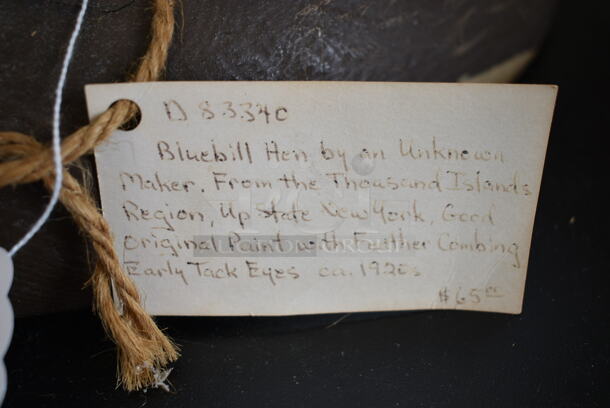 D 8334C
Bluebill Hen by an Unknown
Maker. From the Thousand Islands
Region, Up State New York, Good
original Paint with Feather Combing
Early Tack Eyes ca. 1920s
$65.00